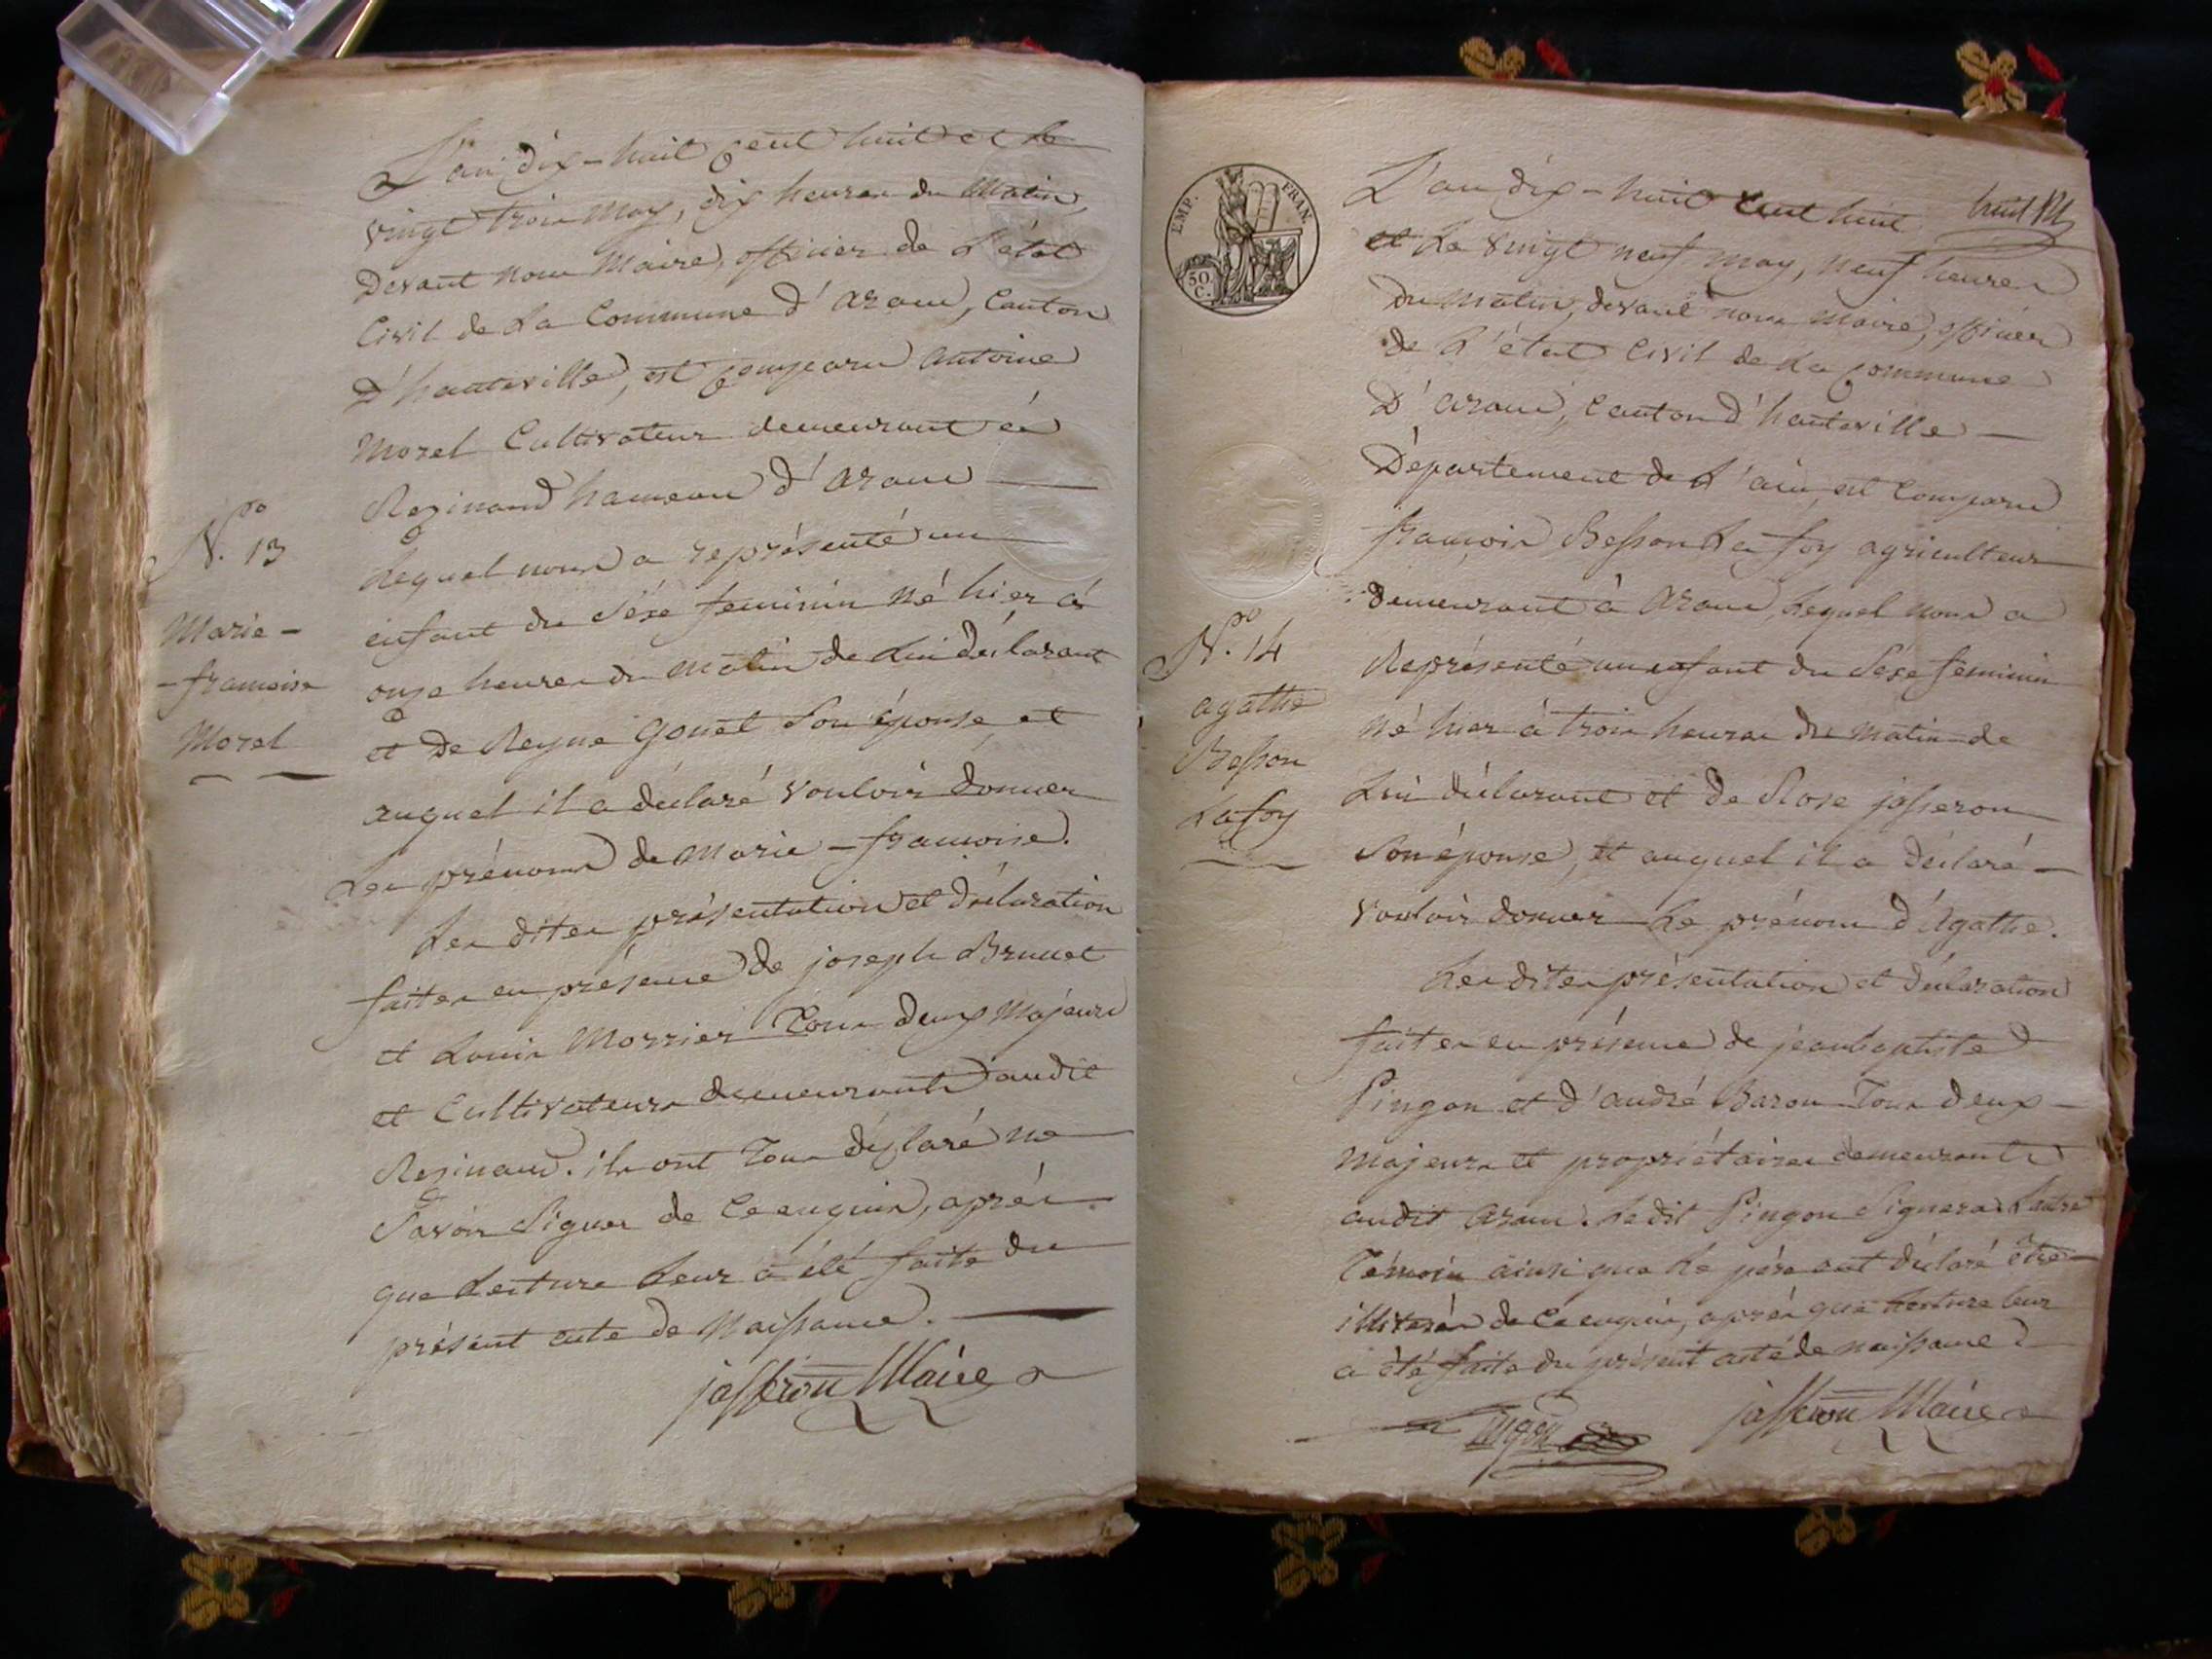 L'an dix-huit cent huit et le
vingt trois may, dix heures du matin,
Devant nous Maire, officier de l'état
Civil de la Commune d'aranc, Canton
D'hauteville, est comparu antoine
Morel Cultivateur demeurant à
Rezinand hameau d'aranc
Lequel nous a représenté un
enfant du séxe feminin né hier à
onze heures du matin de lui déclarant
et De Reyne Gonet son épouse, et
auquel il a déclaré vouloir donner
les prénoms de Marie-françoise.
Les dites présentation et déclaration
faites en présence de joseph Brunet
et Louis Morrier Tous deux Majeurs
et Cultivateurs demeurants audit
Rezinand. ils ont Tous déclaré ne
Savoir Signer de ce enquis, après
que Lecture Leur a été faite du
présent acte de Naissance.
josseron Maire
N.º 13
Marie-
-françoise
Morel
EMP. FRAN.
50 C.
huit
L'an dix-huit cent huit
et le vingt neuf may, neuf heures
du matin, devant nous maire, officier
de l'état Civil de la commune
D'aranc, Canton d'hauteville
Département de l'ain, est comparu
françois Besson La foy agriculteur
demeurant à aranc, Lequel nous a
Représenté un enfant du séxe féminin
né hier à trois heures du matin de
Lui déclarant et de Rose josseron
son épouse, et auquel il a déclaré
vouloir donner le prénom d'Agathe.
Les dites présentation et déclaration
faites en présence de jeanbaptiste
Pingon et d'andré Baron Tous deux
majeurs et propriétaires demeurants
audit aranc. Ledit Pingon Signera L'autre
Témoin ainsi que le père ont déclaré être
illiterés de ce enquis, après que lecture leur
a été faite du présent acte de naissance
Pingon josseron Maire
N.º 14
agathe
Besson
Lafoy